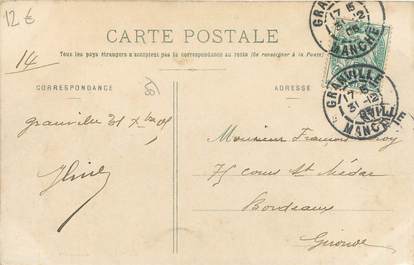 12€
CARTE POSTALE
14
Tous les pays étrangers n'acceptent pas la correspondance au recto (Se renseigner à la Poste)
CORRESPONDANCE
ADRESSE
GRANVILLE
MANCHE
GRANVILLE
17 15
31 -12
MANCHE
Granville 31 Xbre 05
Monsieur François
75 cours St Médar
Bordeaux
Gironde